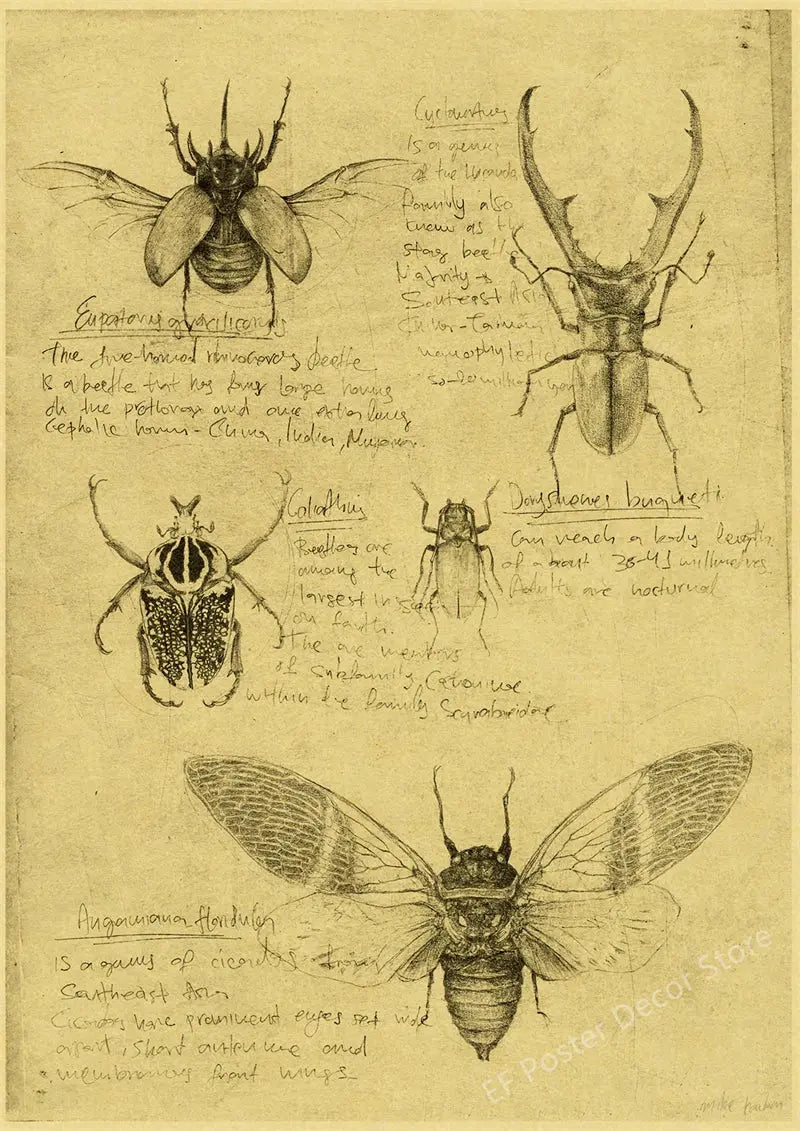 Cyclommatus
Is a genus
of the Lucanda
family also
know as the
stag beetle
Majority
Southeast Asia
Eupatorus gracilicornis
The five-horned rhinoceros beetle
Is a beetle that has four large horns
on the prothorax and one extra long
cephalic horns - China, India,
Goliathus
Beetles are
among the
largest insects
on Earth.
The are members
of subfamily Cetoniinae
within the family Scarabaeidae
Dorysthenes buqueti
Can reach a body length
of about 36-41 millimetres
Adults are nocturnal
Angamiana floridula
Is a genus of cicadas from
Southeast Asia
Cicadas have prominent eyes set wide
apart, short antennae and
membranous front wings
EF Poster Decor Store